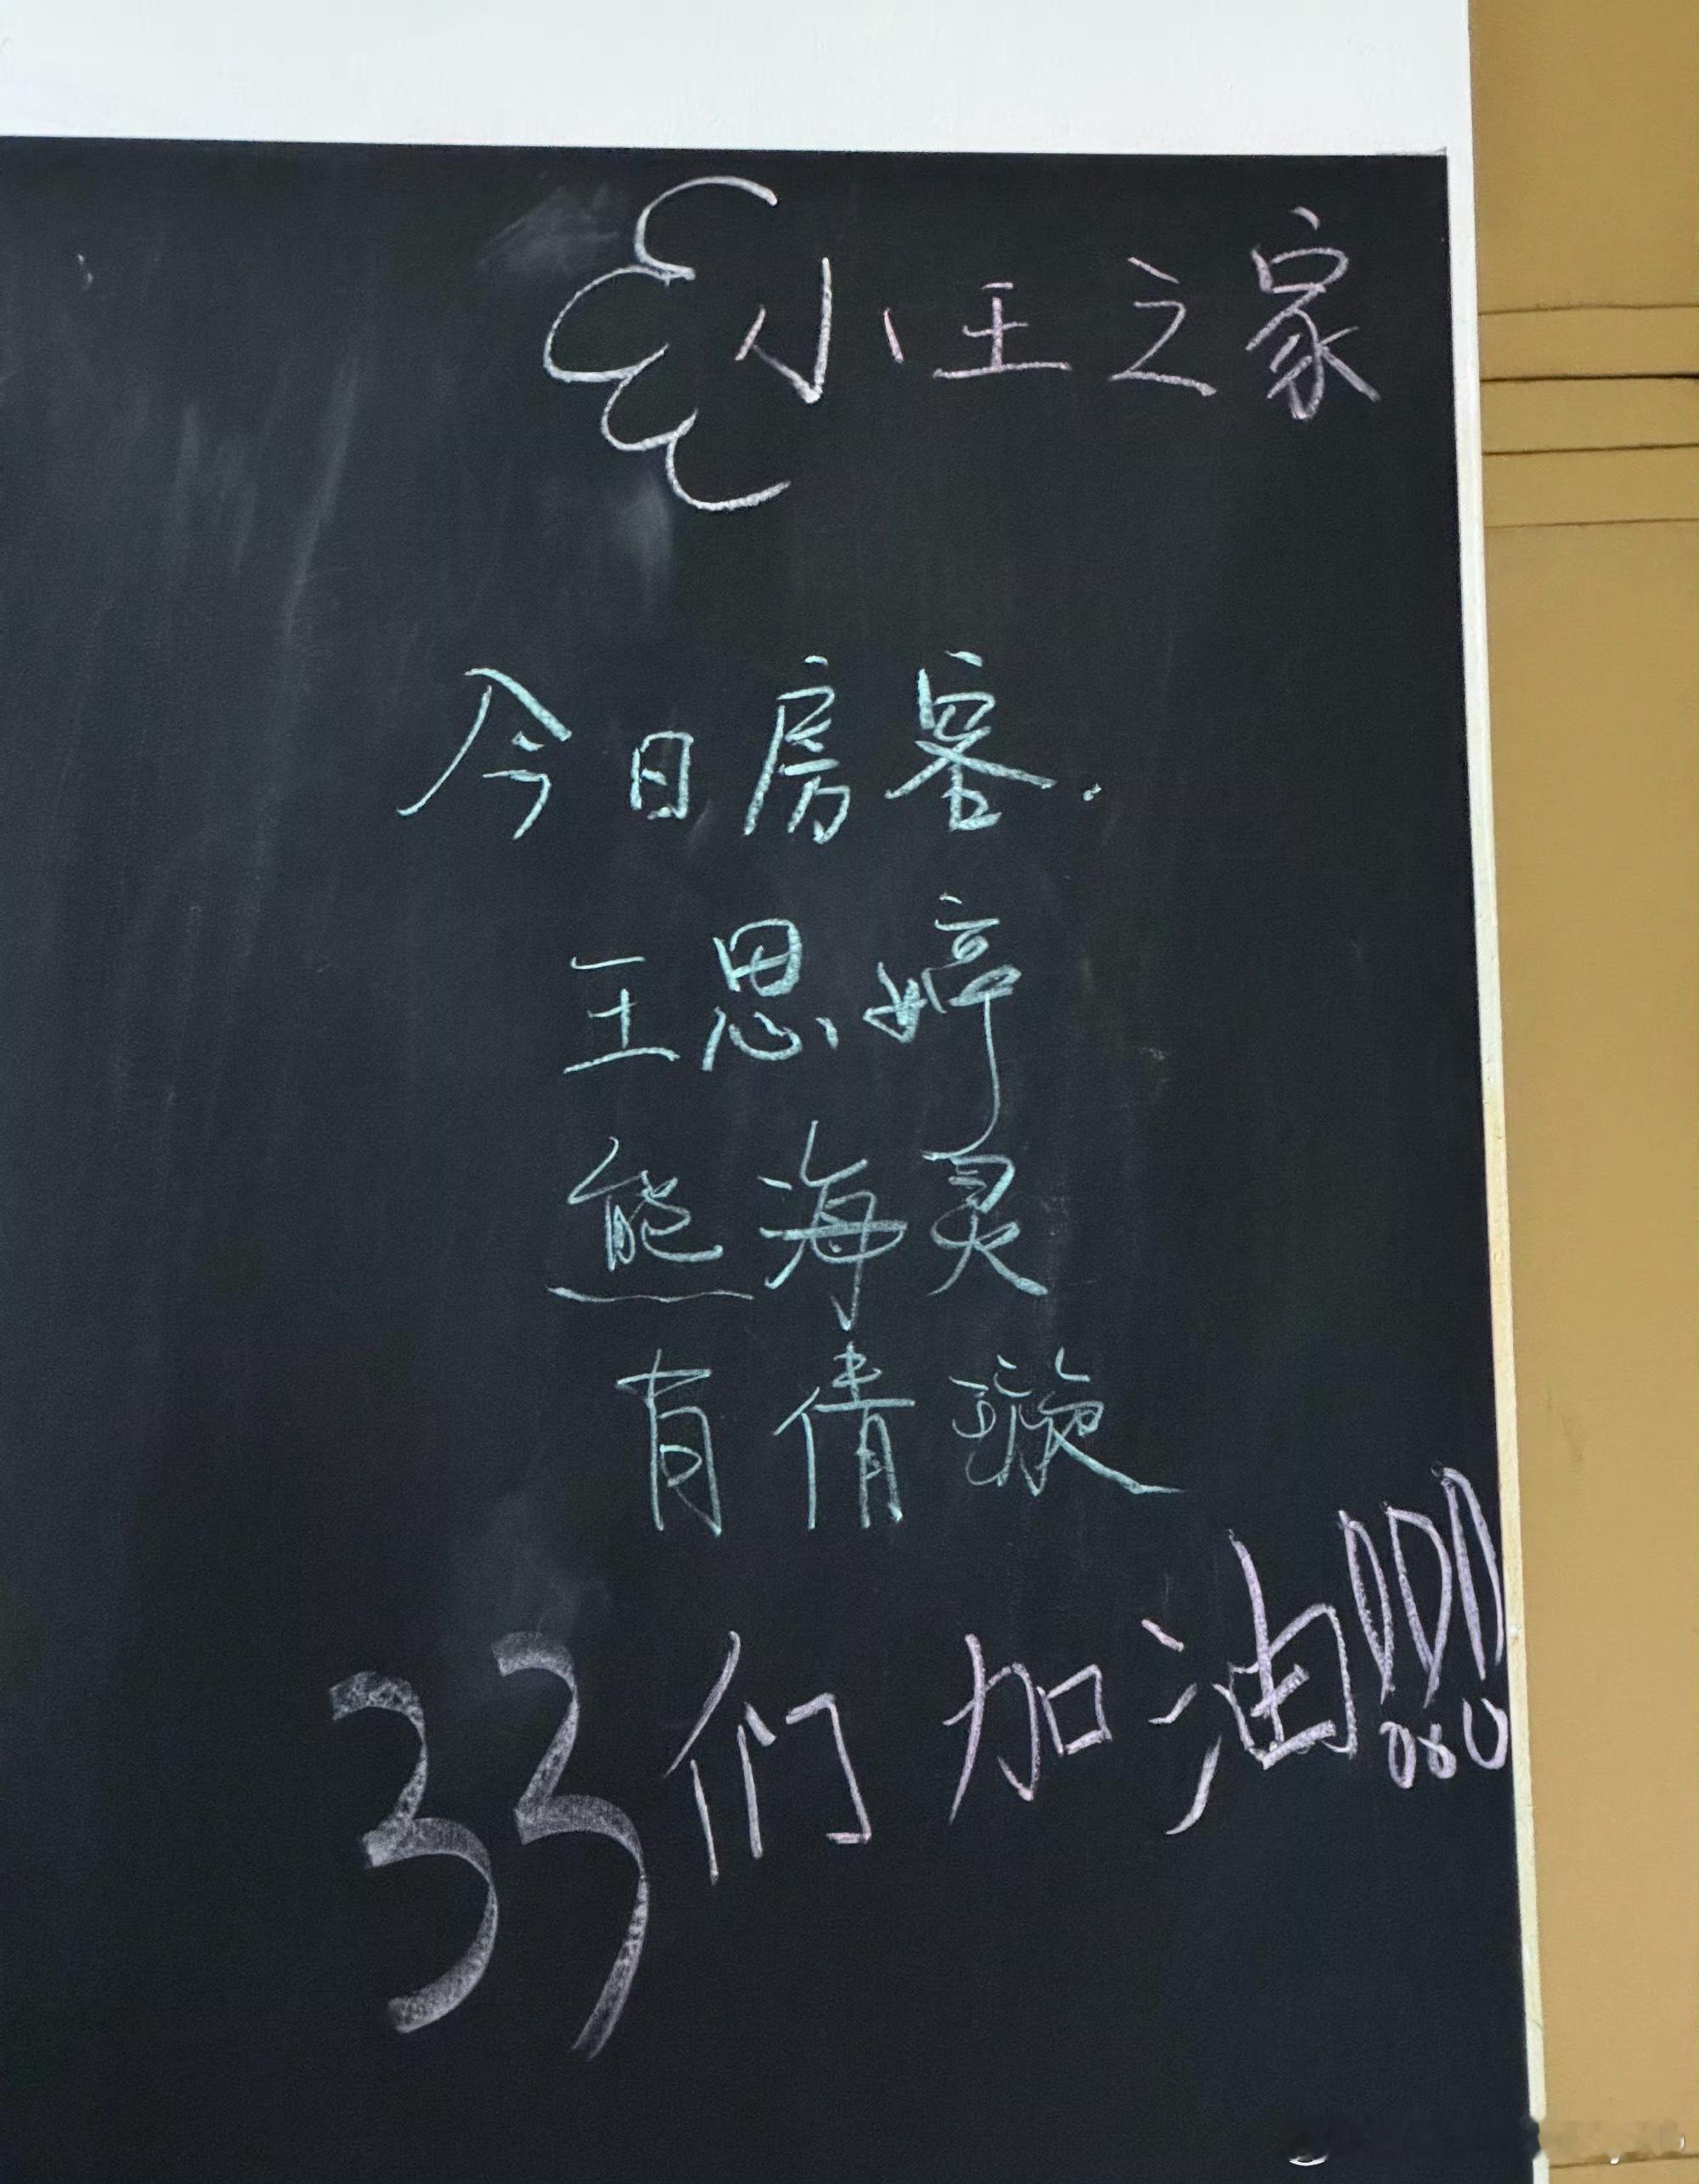 小王之家
今日房客.
王思婷
熊海灵
有倩璇
33们加油!!!